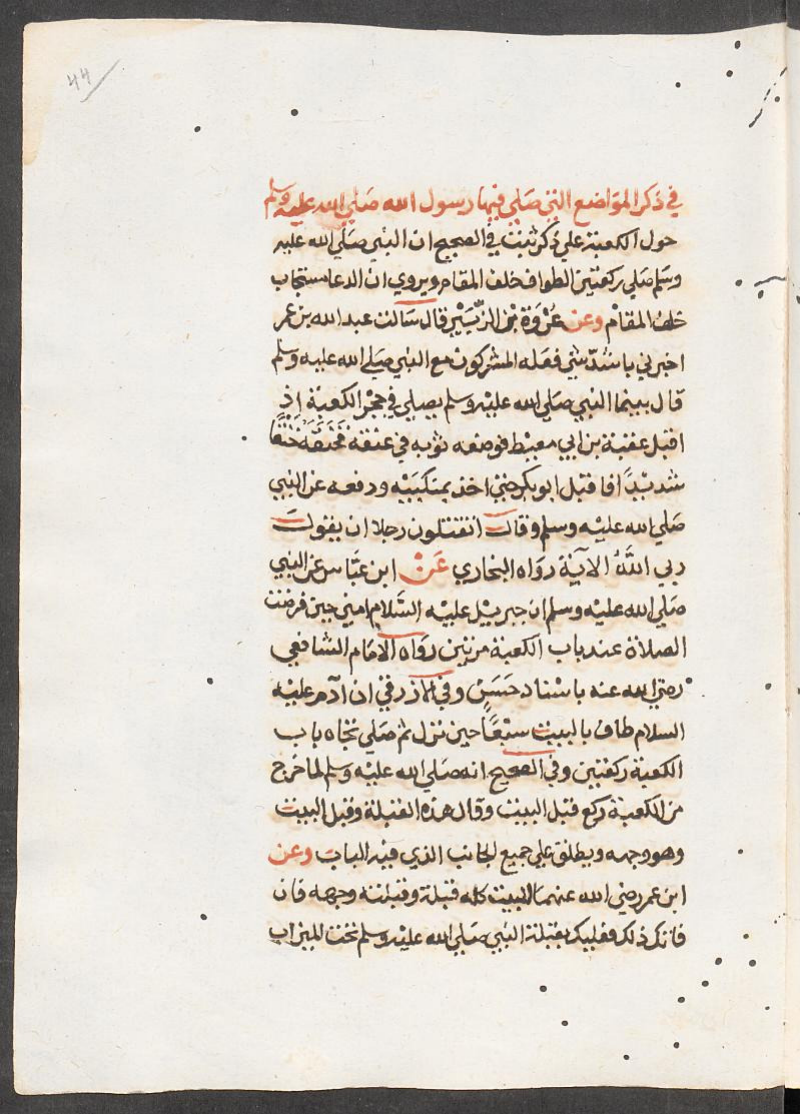 44
في ذكر المواضع التي صلي فيها رسول الله صلي الله عليه وسلم
حول الكعبة علي ذكر ثبت في الصحيح ان النبي صلي الله عليه
وسلم صلي ركعتين الطواف خلف المقام ويروي ان الدعا مستجاب
خلف المقام وعن عُرْوَة بن الزّبَيْر قال سالت عبد الله بن عمر
اخبرني باشدّ شي فعله المشركون مع النبي صلي الله عليه وسلم
قال بينما النبي صلي الله عليه وسلم يصلي في حجر الكعبة اذ
اقبل عقبة بن ابي معيط فوضعه ثوبه في عنقه فخنقه خنقًا
شديدًا فاقبل ابو بكر حتي اخذ بمنكبيه ودفعه عن النبي
صلي الله عليه وسلم وقال اتقتلون رجلا ان يقول
ربي اللَّهُ الاية رواه البخاري عَنْ ابن عبّاس عن النبي
صلي الله عليه وسلم ان جبريل عليه السَّلام امني حين فرضت
الصلاة عند باب الكعبة مرتين رواه الامام الشافعي
رضي الله عنه باسناد حَسَنٍ وفي الازرقي ان آدم عليه
السلام طاف بالبيت سبْعًا حين نزل ثم صلي تجاه باب
الكعبة ركعتين وفي الصحيح انه صلي الله عليه وسلم لما خرج
من الكعبة ركع قبل البيت وقال هذه القبلة وقبل البيت
وهو وجهه ويطلق علي جميع الجانب الذي فيه الباب وعن
ابن عمر رضي الله عنهما البيت كله قبلة وقبلته وجهه فان
فاتك ذلك فعليك بقبلة النبي صلي الله عليه وسلم تحت الميزاب